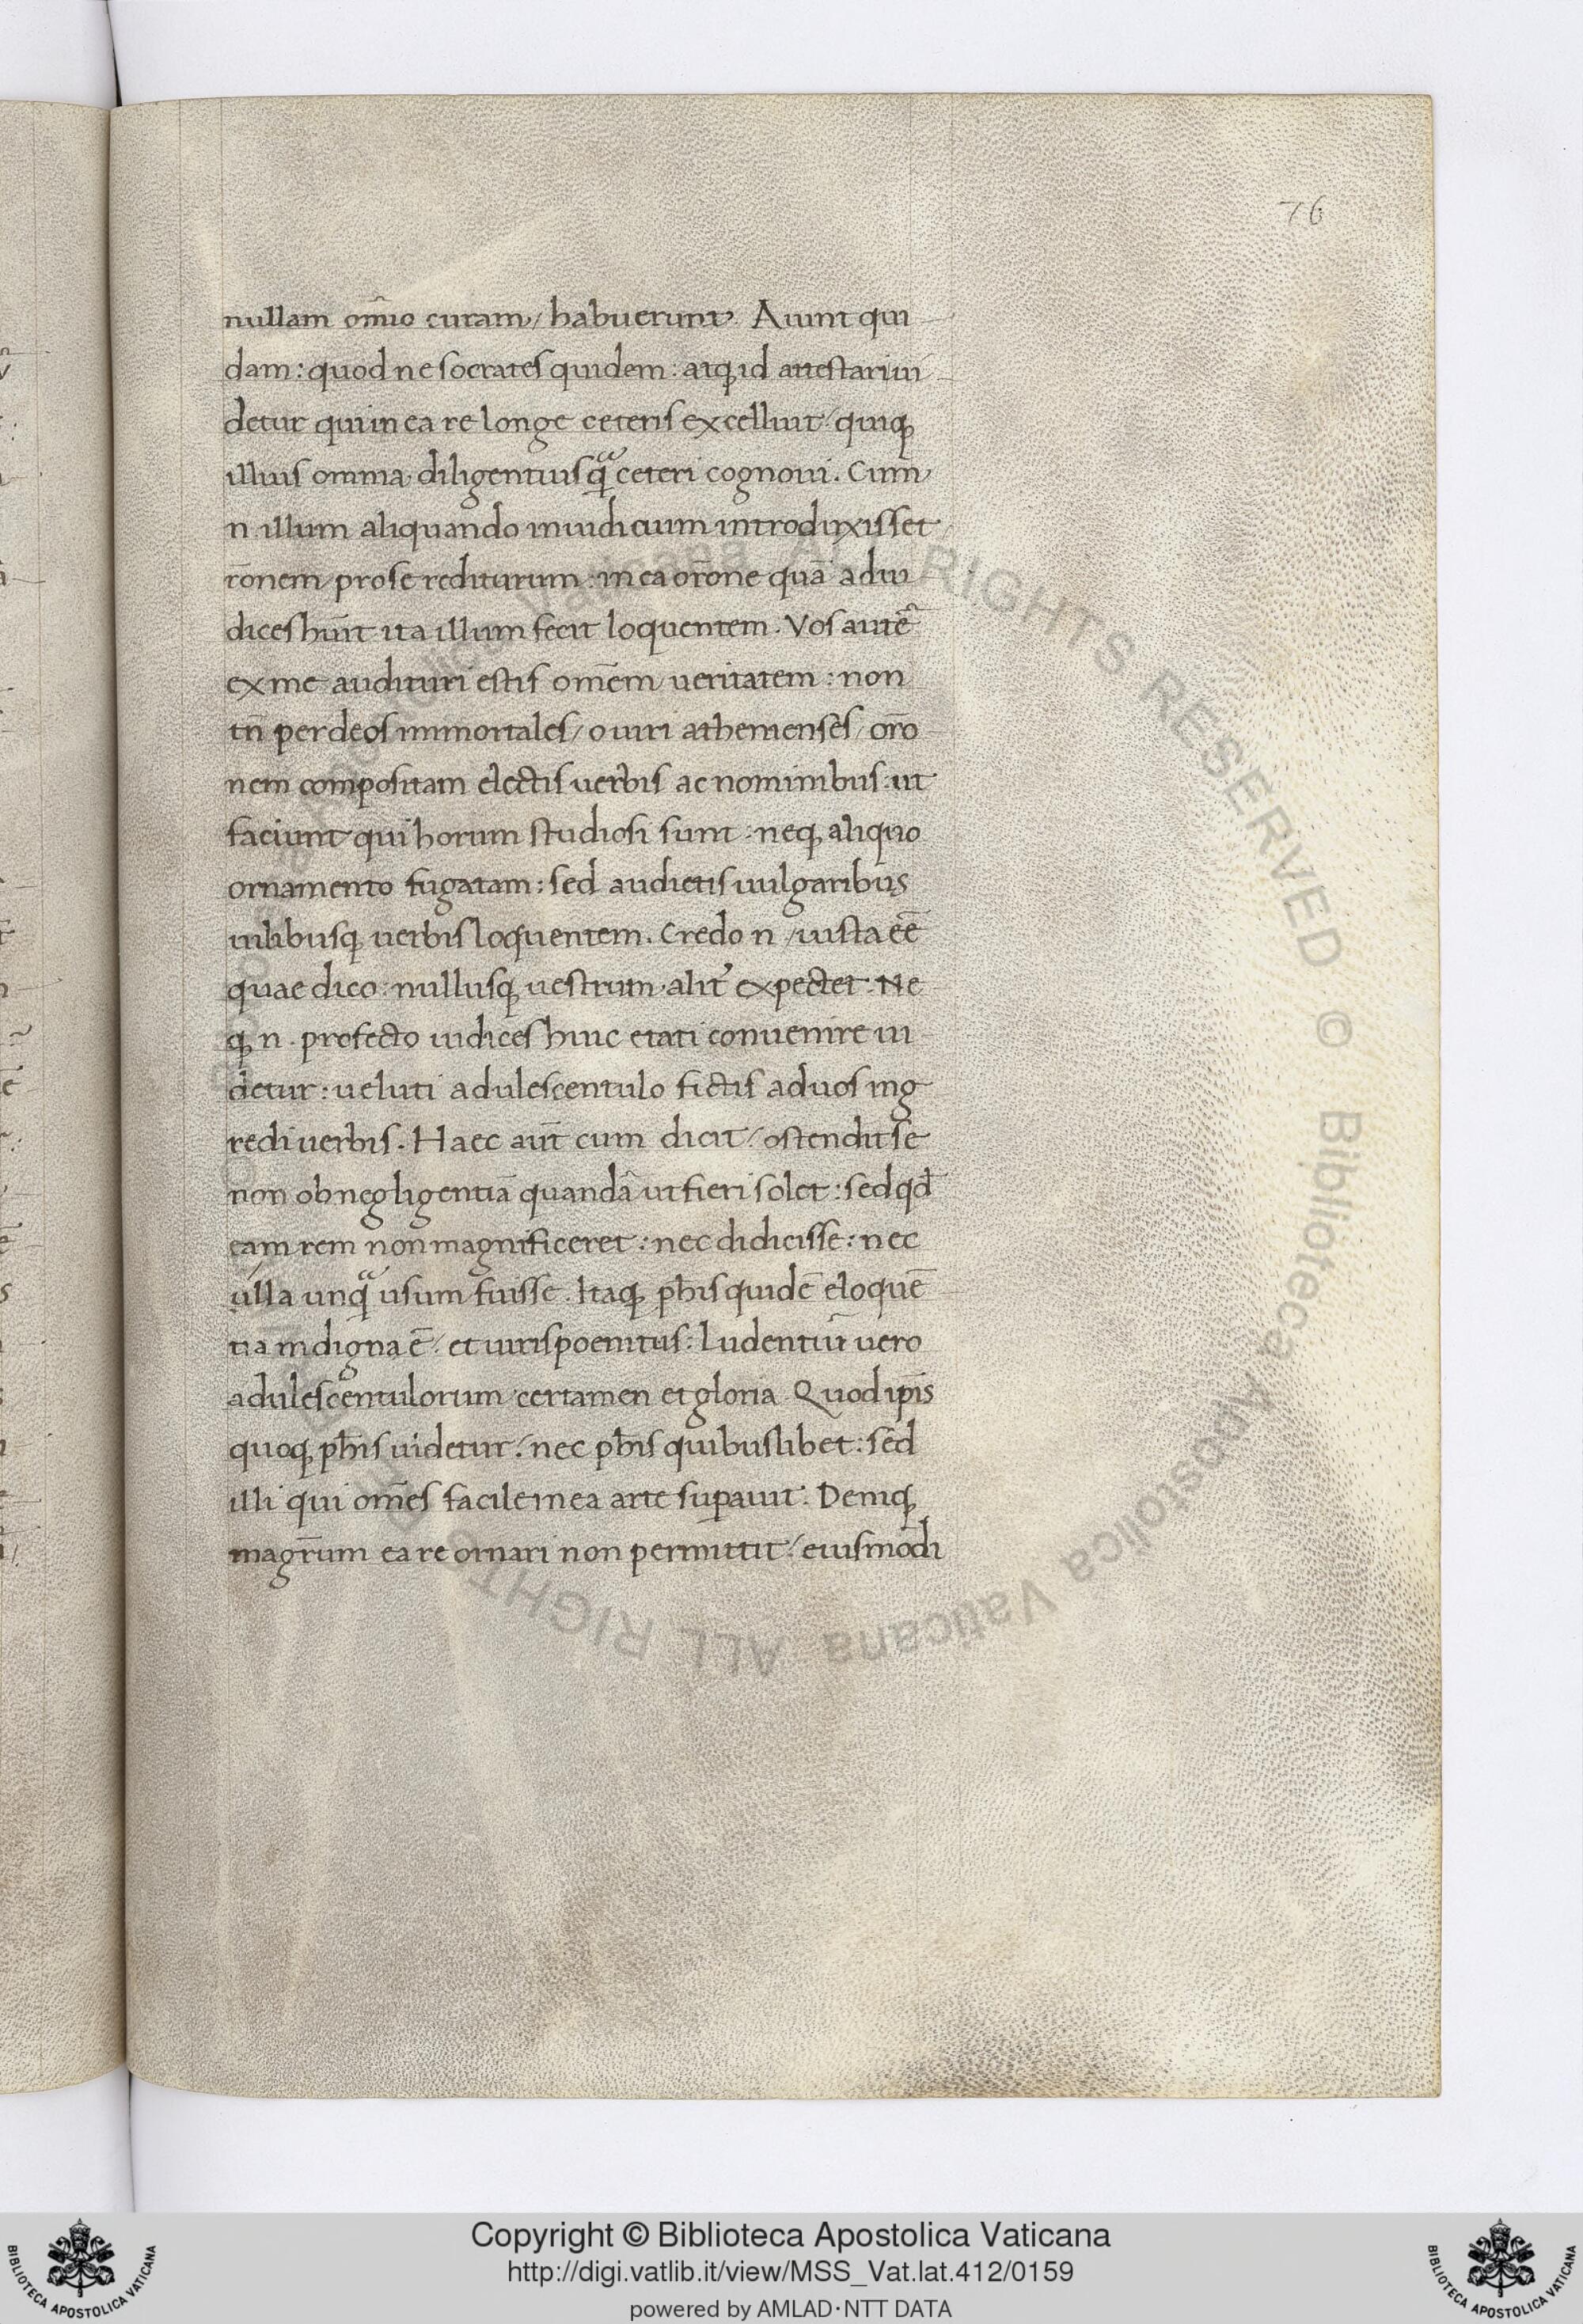 76
nullam om̄io curam / habuerunt. Aiunt qui
dam : quod ne socrates quidem : atqꝫ id attestari ui
detur qui in ea re longe ceteris excelluit / quiqꝫ
illius omnia diligentius qᷓ ceteri cognoui. Cum
n. illum aliquando in iudicium introduxisset /
rōnem pro se rediturum : in ea orōne quā ad iu
dices hūit ita illum fecit loquentem. Vos autē
ex me audituri estis om̄em ueritatem : non
tn̄ per deos immortales / o uiri athenienses / orō
nem compositam electis uerbis ac nominibus : ut
faciunt qui horum studiosi sunt : neqꝫ aliquo
ornamento fugatam : sed audietis uulgaribus
uilibusqꝫ uerbis loquentem. Credo n / iusta eē
quae dico : nullusqꝫ uestrum alit̓ expectet. Ne
qꝫ n. profecto iudices huic etati conuenire ui
detur : ueluti adulescentulo fictis ad uos ing
redi uerbis. Haec aut̄ cum dicit / ostendit se
non ob negligentiā quandā ut fieri solet : sed qd̄
eam rem non magnificeret : nec didicisse : nec
ulla unqᷓ usum fuisse. Itaqꝫ ph̄is quidē eloquē
tia indigna ē / et uiris poenitus : Ludentiū uero
adulescentulorum certamen et gloria. Quod ip̄is
quoqꝫ ph̄is uidetur / nec ph̄is quibuslibet : sed
illi qui om̄es facile in ea arte suꝑauit. Deniqꝫ
magr̄um ea re ornari non permittit / eiusmodi
Copyright © Biblioteca Apostolica Vaticana
http://digi.vatlib.it/view/MSS_Vat.lat.412/0159
powered by AMLAD·NTT DATA